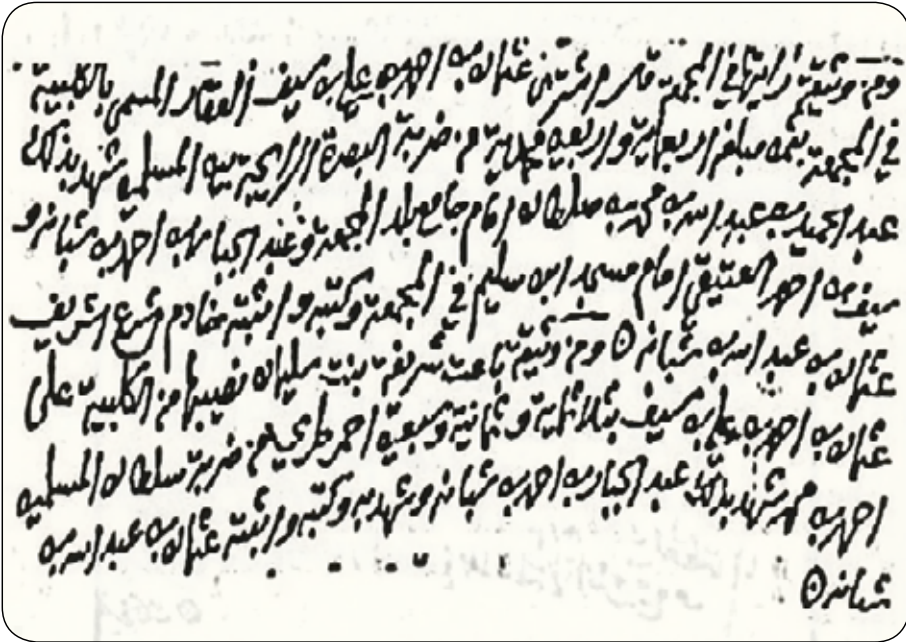 ومن وثيقة رايتها في المجمعة قد اشترى عثمان بن احمد بن علي بن سيف العقار المسمى بالكليبية
في المجمعة بثمن مبلغه اربعماية واربعين محمدية من ضربة البصرة الرايجة بين المسلمين شهد بذلك
عبد الحميد بن عبد الله بن محمد بن سلطان امام جامع بلد المجمعة وعبد الجبار بن احمد بن شبانه و
سيف بن احمد العتيقي امام مسجد ابن سليم في المجمعة وكتبه واثبته خادم الشرع الشريف
عثمان بن عبد الله بن شبانه ومن وثيقة باعت شريفة بنت سليمان نصيبها من الكليبية على
عثمان بن احمد بن علي بن سيف بثلاثماية وثمانية وسبعين احمر من ضربة سلطان المسلمين
احمد بن محمد شهد بذلك عبد الجبار بن احمد بن شبانه وشهد به وكتبه واثبته عثمان بن عبد الله بن
شبانه